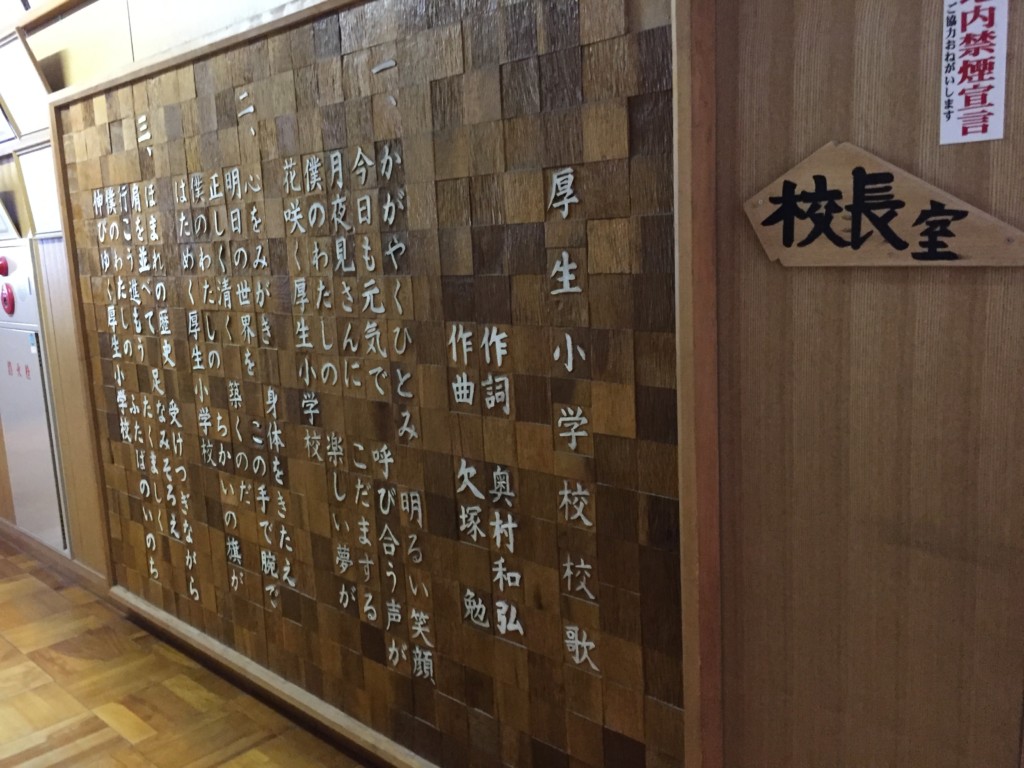 内禁煙宣言
ご協力おねがいします
校長室
厚生小学校校歌
作詞 奥村和弘
作曲 欠塚 勉
一、
かがやくひとみ 明るい笑顔
今日も元気で 呼び合う声が
月夜見さんに こだまする
僕のわたしの 楽しい夢が
花咲く厚生小学校
二、
心をみがき 身体をきたえ
明日の世界を この手で腕で
正しく清く 築くのだ
僕のわたしの ちかいの旗が
はためく厚生小学校
三、
ほまれの歴史 受けつぎながら
肩を並べて 足なみそろえ
行こう進もう たくましく
僕のわたしの ふたばのいのち
伸びゆく厚生小学校
消火栓